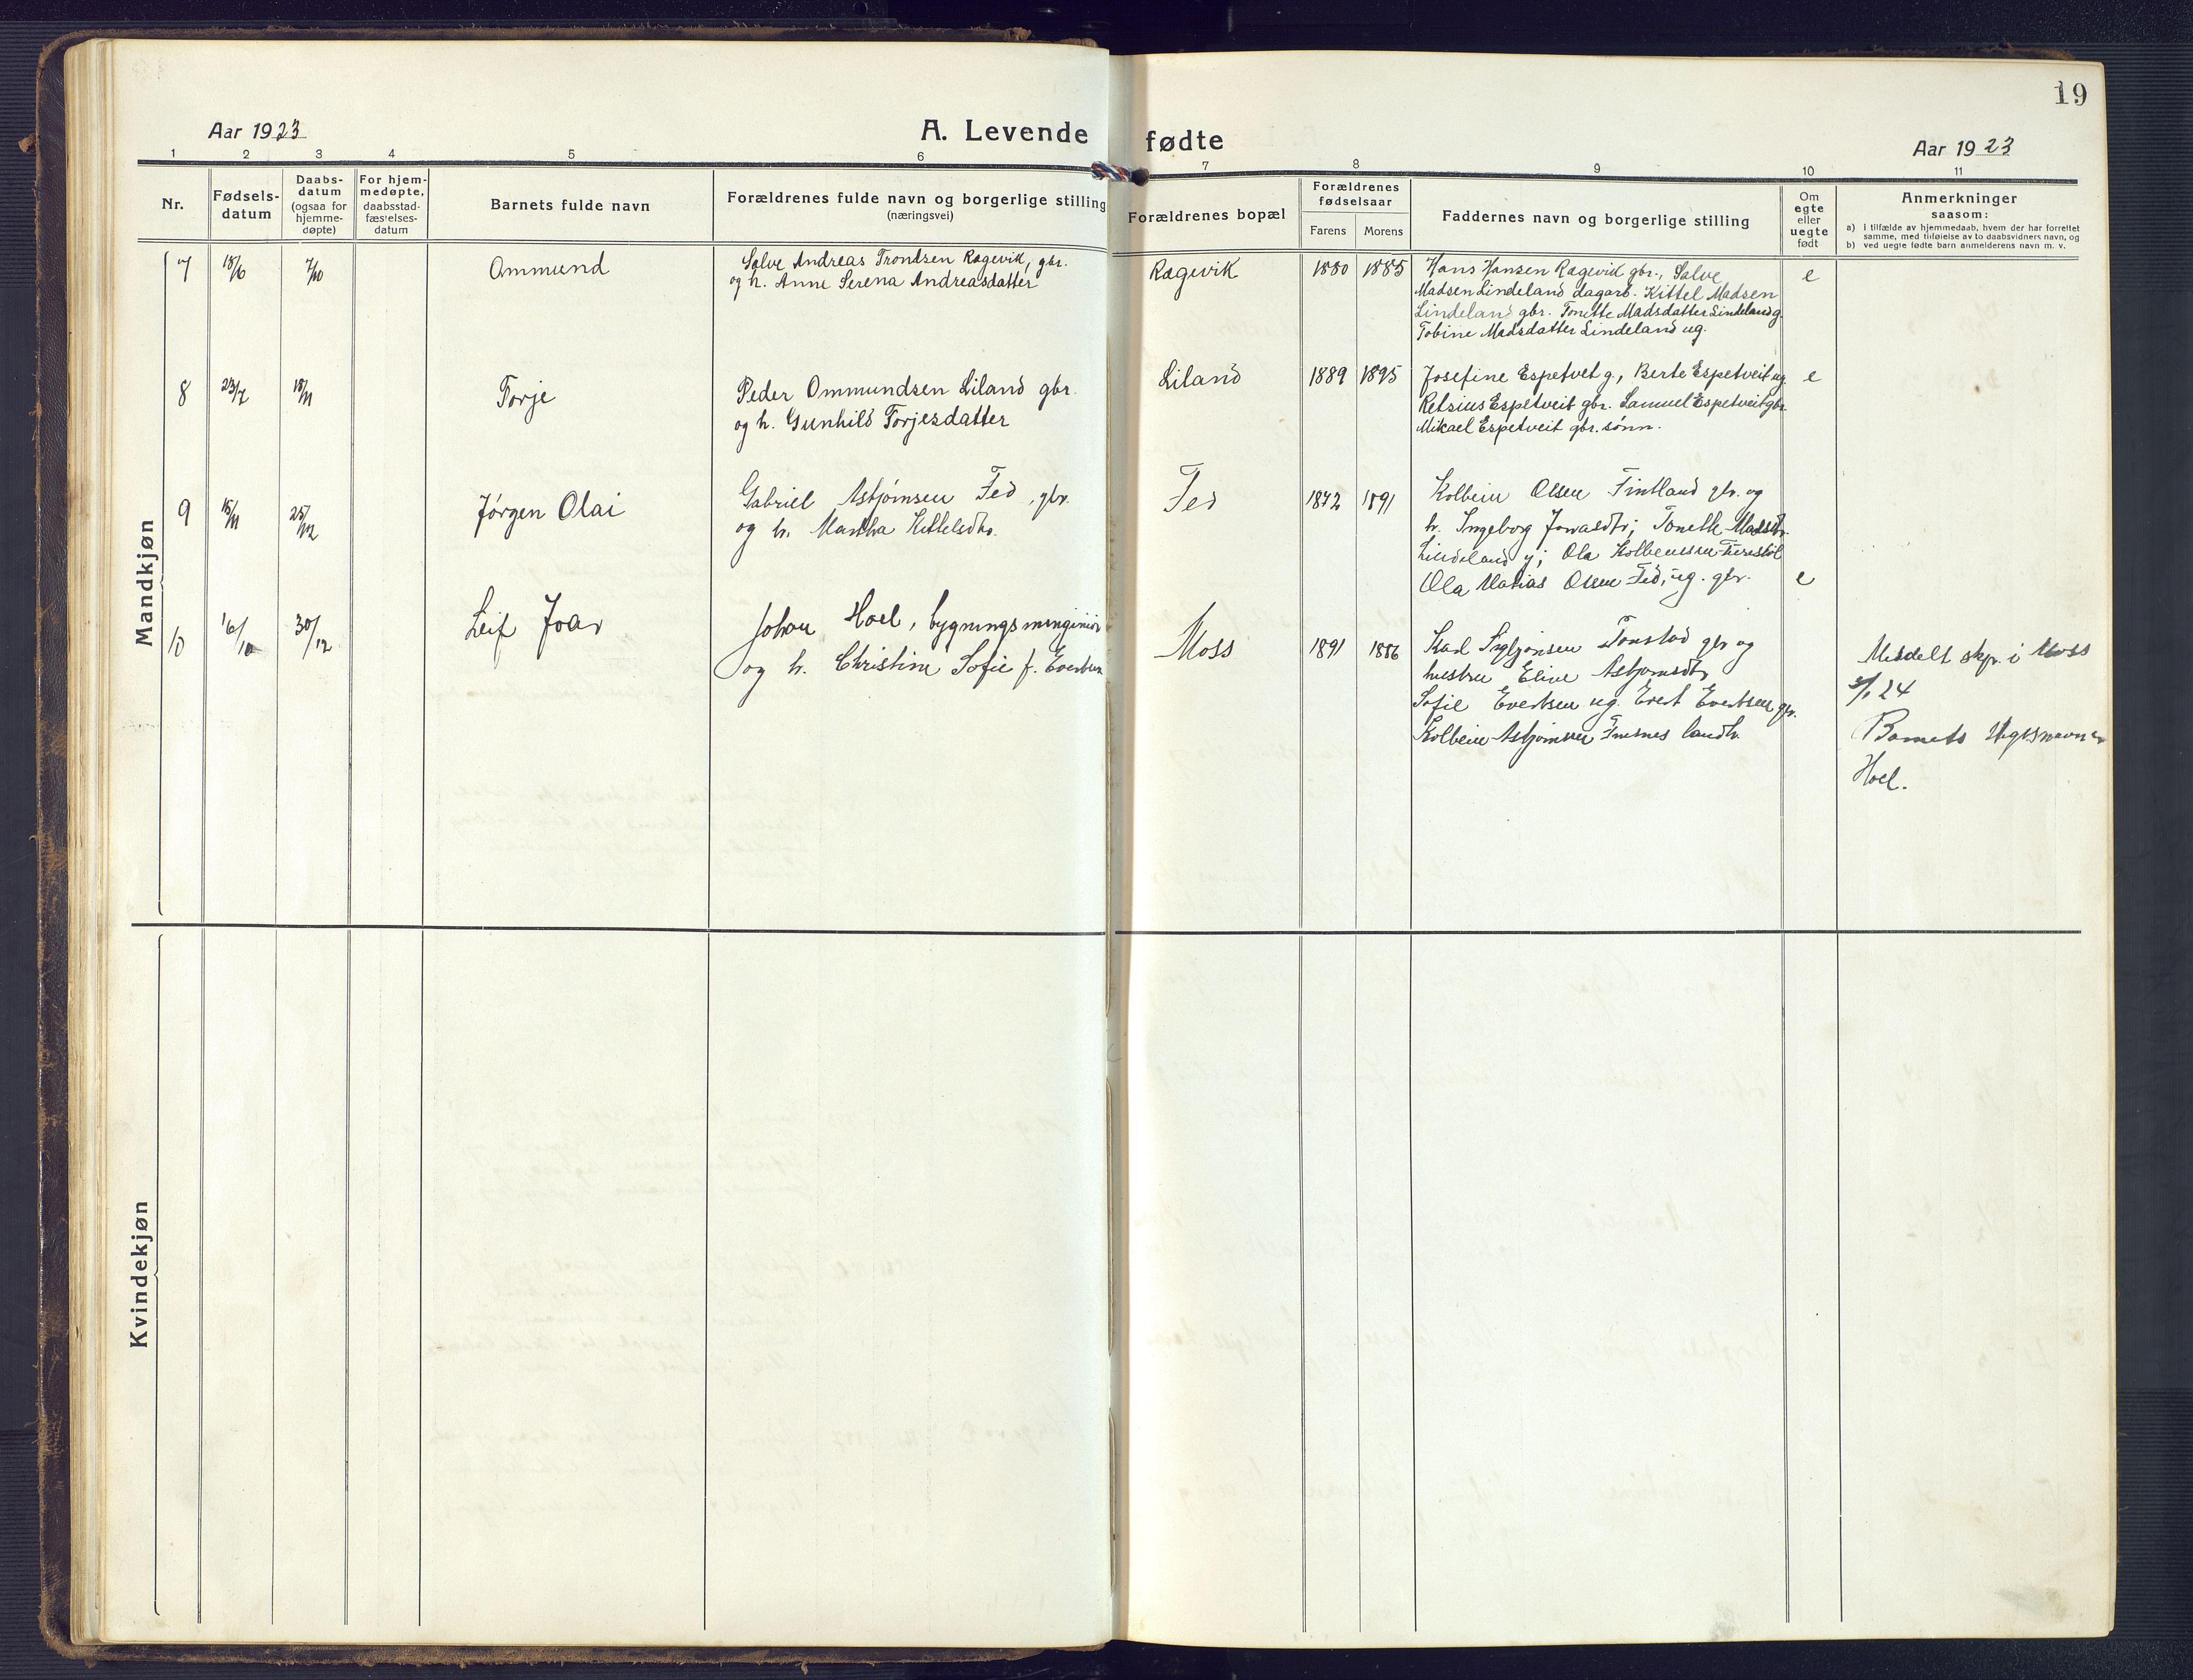 19
Aar 1923
A. Levende fødte
Aar 1923
1 2 3 4 5 6 7 8 9 10 11
Nr.
Fødsels-
datum
Daabs-
datum
(ogsaa for
hjemme-
døpte)
For hjem-
medøpte,
daabsstad-
fæstelses-
datum
Barnets fulde navn
Forældrenes fulde navn og borgerlige stilling
(næringsvei)
Forældrenes bopæl
Forældrenes
fødselsaar
Farens Morens
Faddernes navn og borgerlige stilling
Om
egte
eller
uegte
født
Anmerkninger
saasom:
a) i tilfælde av hjemmedaab, hvem der har forrettet
samme, med tilføielse av to daabsvidners navn, og
b) ved uegte fødte barn anmelderens navn m. v.
Mandkjøn
7 18/6 7/10 Ommund
Salve Andreas Trondsen Ragevik, gbr.
og h. Anne Serena Andreasdatter
Ragevik 1880 1885
Hans Hansen Ragevik gbr., Salve
Madsen Lindeland dagarb. Kittel Madsen
Lindeland gbr. Tonette Madsdatter Lindeland g.
Tobine Madsdatter Lindeland ug.
e
8 23/7 18/11 Torje
Peder Ommundsen Liland gbr.
og h. Gunhild Torjesdatter
Liland 1889 1895
Josefine Espetvet g, Berte Espetveit ug.
Retsius Espetveit gbr. Samuel Espetveit gbr.
Mikael Espetveit gbr. sønn.
e
9 15/11 25/12 Jørgen Olai
Gabriel Asbjørnsen Fed, gbr.
og h. Martha Kittelsdtr.
Fed 1872 1891
Kolbein Olsen Fintland gbr. og
h. Ingeborg Jonasdtr; Tonette Madsdtr.
Lindeland g; Ola Kolbensen
Ola Matias Olsen Fed, ug. gbr.
e
10 16/10 30/12 Leif Joar
Johan Hoel, bygningsingeniør
og h. Christine Sofie f. Evertsen
Moss 1891 1886
Karl Sigbjørnsen Tonstad gbr og
hustru Eline Asbjørnsdtr
Sofie Evertsen ug. Evert Evertsen gbr.
Kolbein Asbjørnsen landh.
Meddelt skp. i Moss
24
Barnets slegtsnavn er
Hoel.
Kvindekjøn